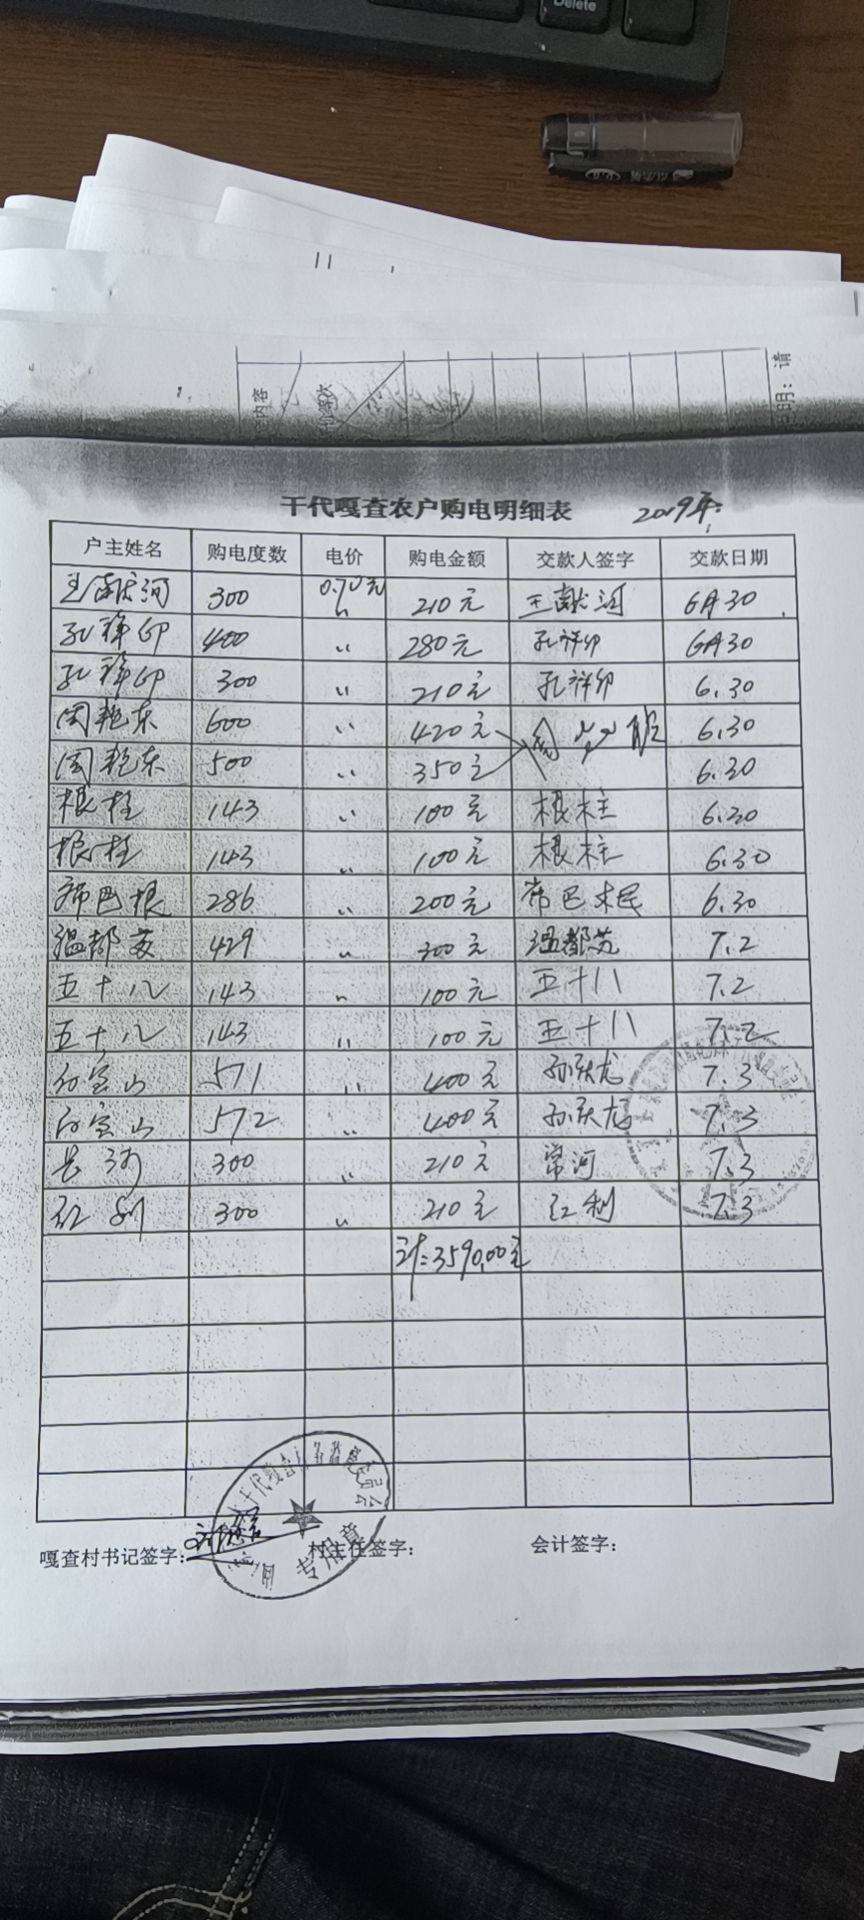 Delete
内容
请
干代嘎查农户购电明细表 2019年:
户主姓名 购电度数 电价 购电金额 交款人签字 交款日期
王献河 300 0.70元 〃 210元 王献河 6月30
孔祥印 400 〃 280元 孔祥印 6月30
孔祥印 300 〃 210元 孔祥印 6.30
周艳东 600 〃 420元 6.30
周艳东 500 〃 350元 6.30
根柱 143 〃 100元 根柱 6.30
根柱 143 〃 100元 根柱 6.30
布巴根 286 〃 200元 布巴根 6.30
温都苏 429 〃 300元 温都苏 7.2
五十八 143 〃 100元 五十八 7.2
五十八 143 〃 100元 五十八 7.2
宝山 571 〃 400元 孙庆龙 7.3
宝山 572 〃 400元 孙庆龙 7.3
长河 300 〃 210元 常河 7.3
红利 300 〃 210元 红利 7.3
计:3590.00元
嘎查村书记签字: 村主任签字: 会计签字:
专用章